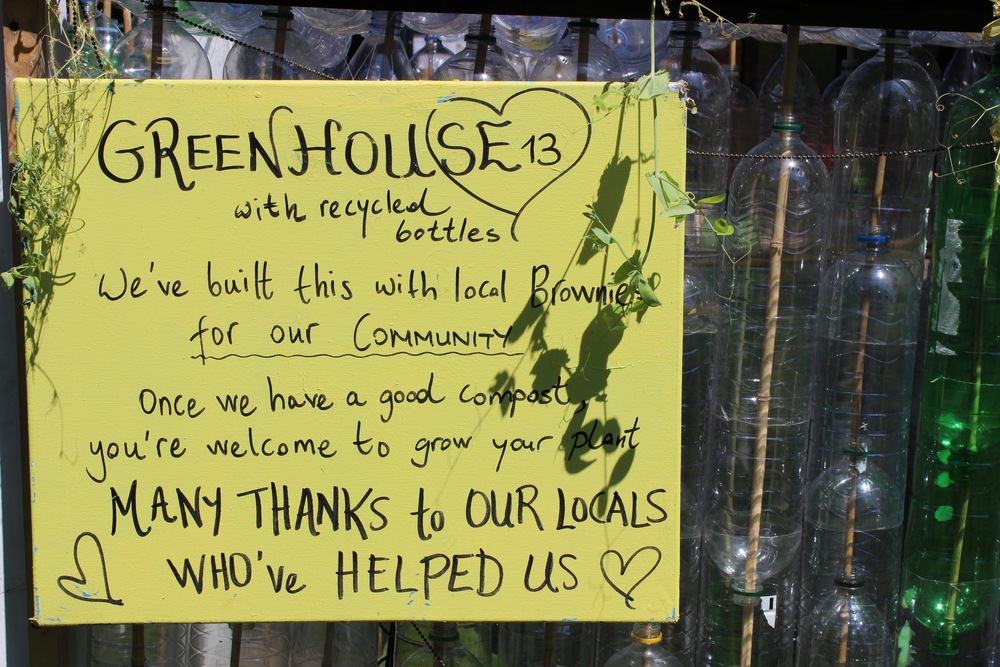 GREENHOUSE 13
with recycled
bottles
We've built this with local Brownies
for our COMMUNITY
Once we have a good compost,
you're welcome to grow your plant
MANY THANKS to OUR LOCALS
WHO've HELPED US